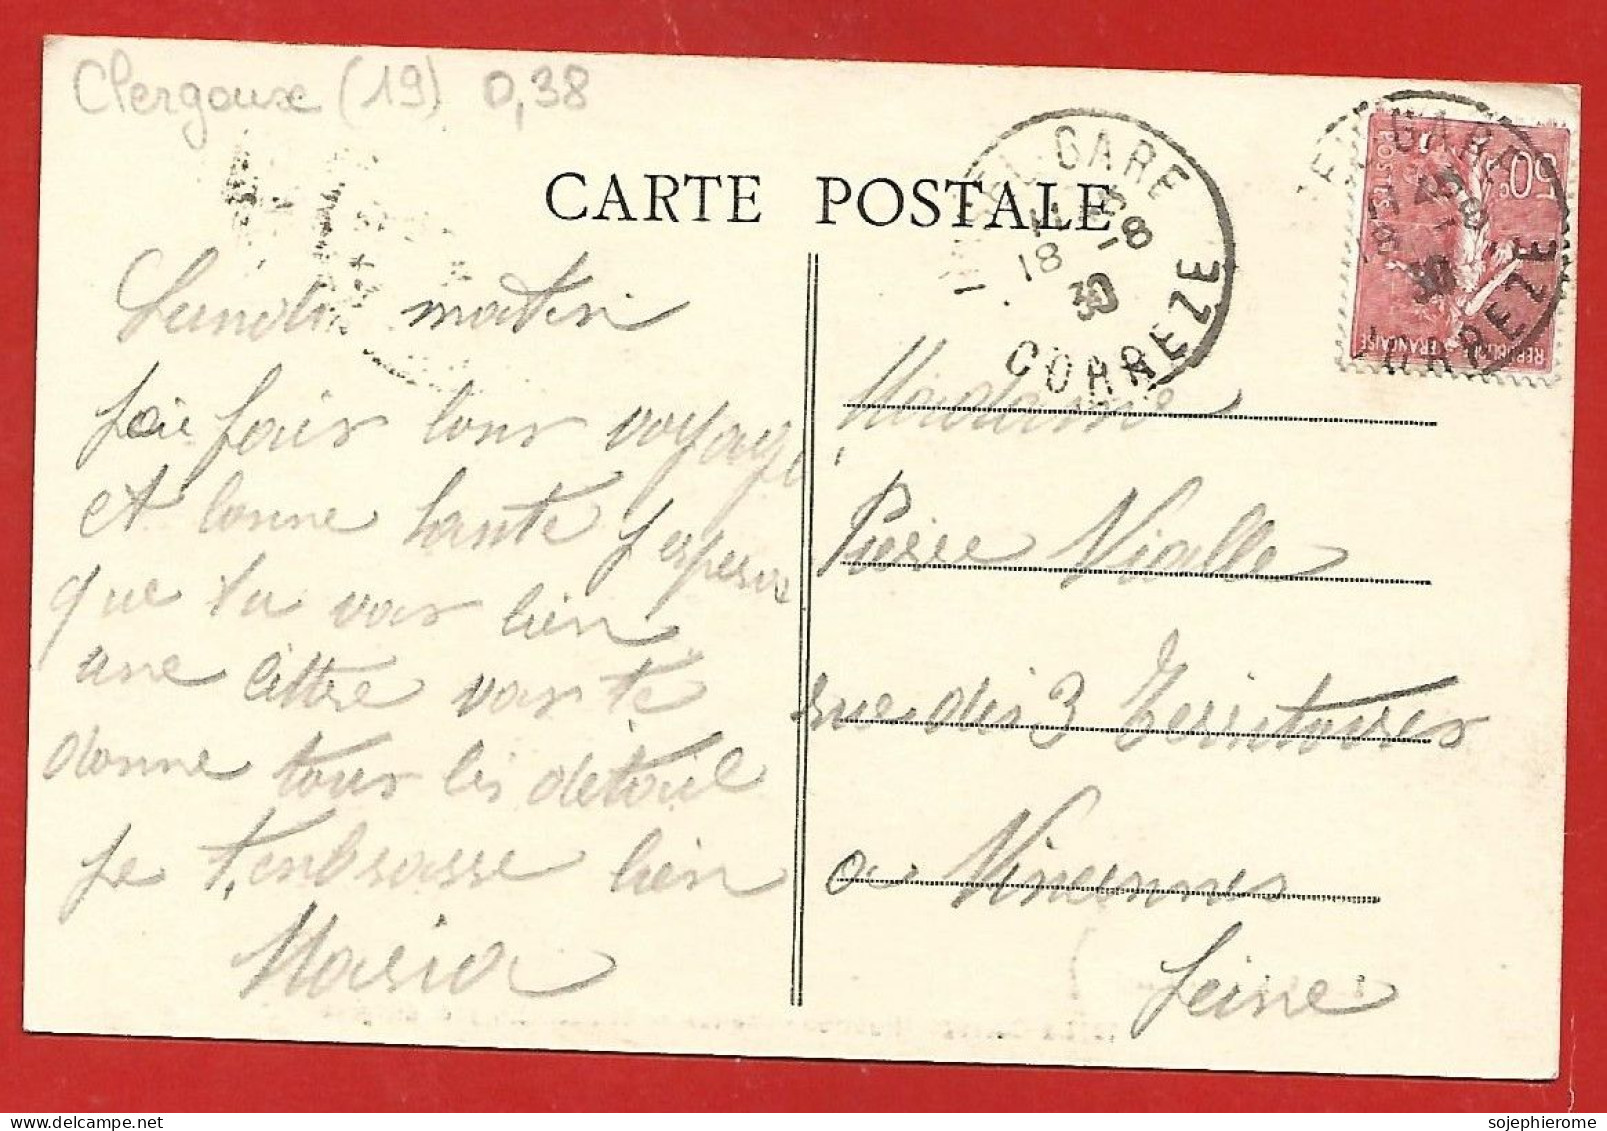 Clergoux (19) 0,38
CARTE POSTALE
GARE
18 -8
30
CORREZE
GARE
50c
POSTES
30
REPUBLIQUE FRANÇAISE
CORREZE
Lundi matin
J'ai fair bons voyage
et bonne sante j'espere
que tu vas bien
une lettre vas te
donne tous les detail
Je t'enbrasse bien
Maria
Madame
Pierre Vialle
rue des 3 Territoires
a Vincennes
Seine
sojephierome